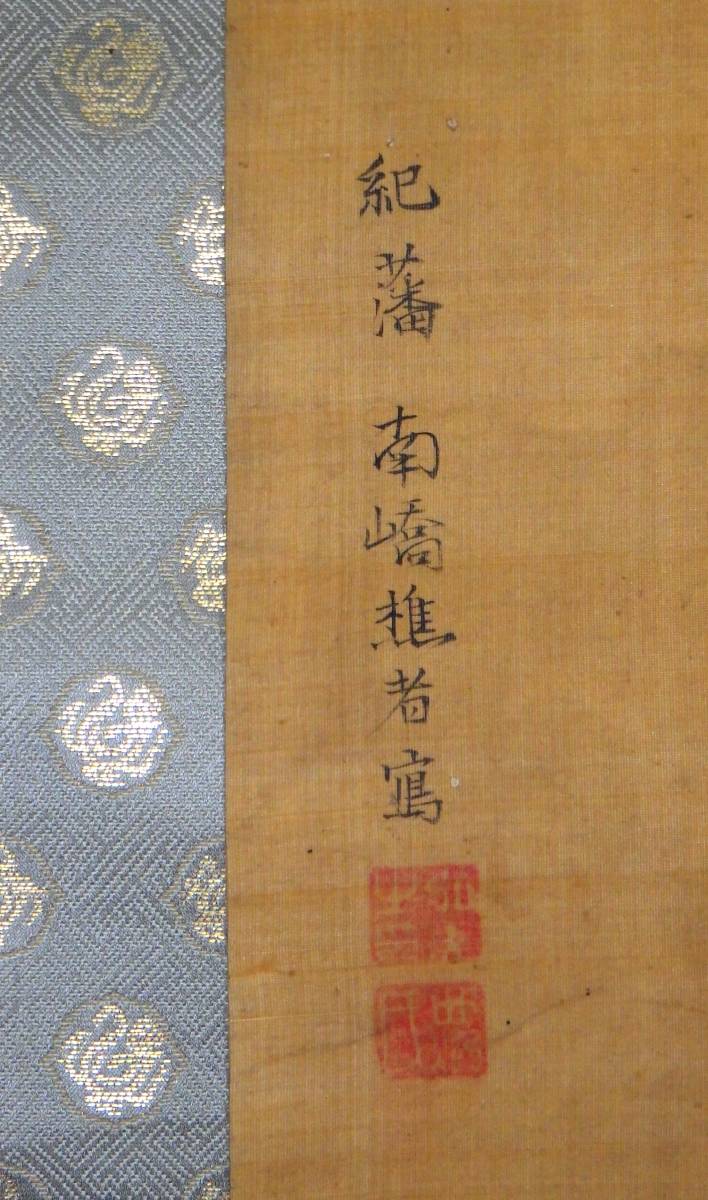 紀藩 南嶠樵者寫